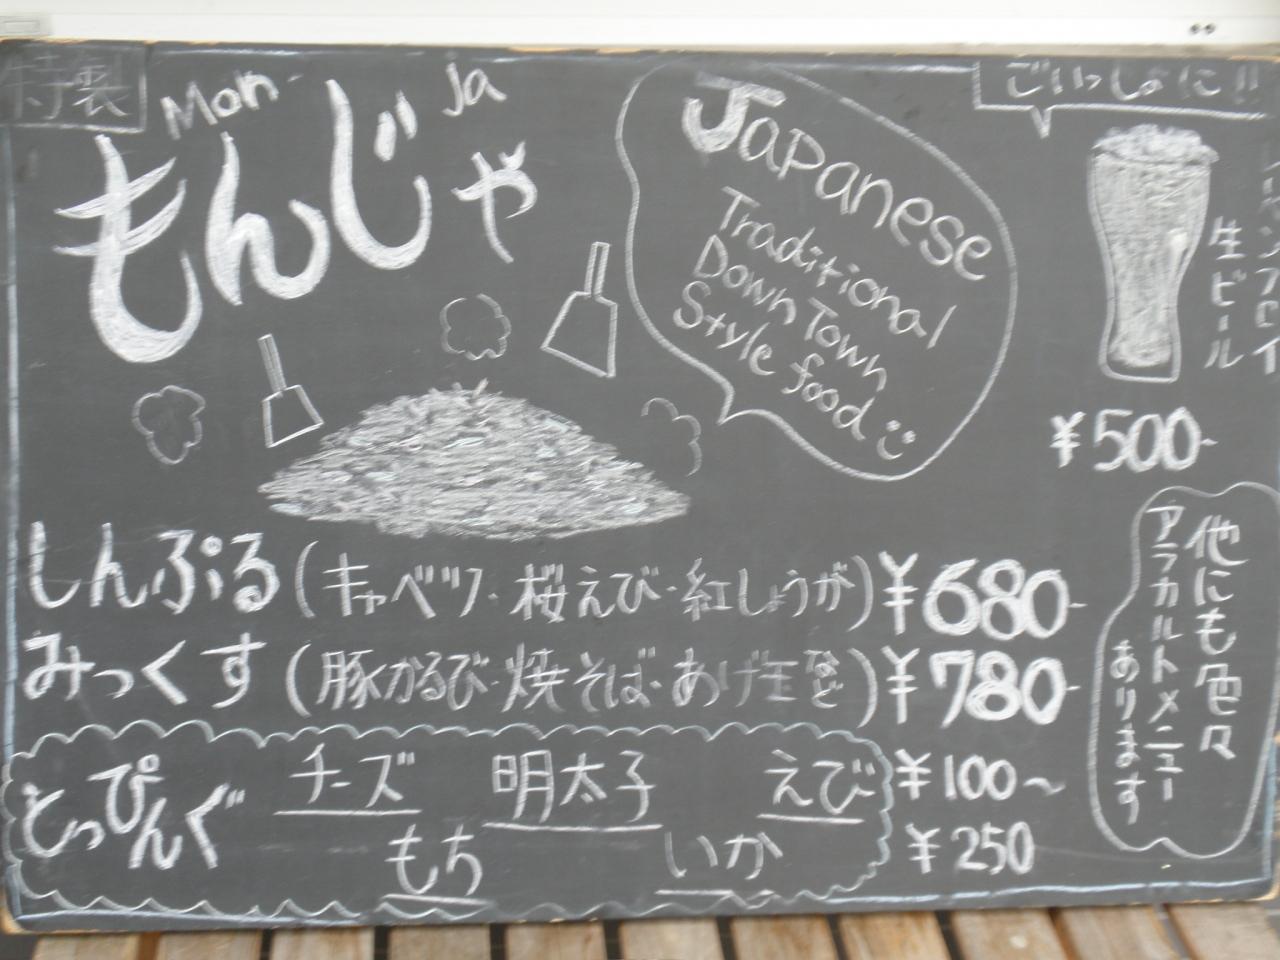 特製
Mon-ja
もんじゃ
Japanese
Traditional
Down Town
Style food
ごいっしょに!!
生ビール
¥500-
しんぷる(キャベツ・桜えび・紅しょうが)¥680-
みっくす(豚かるび・焼そば・あげ玉など)¥780-
とっぴんぐ
チーズ 明太子 えび
もち いか
¥100〜
¥250
他にも色々
アラカルトメニュー
あります